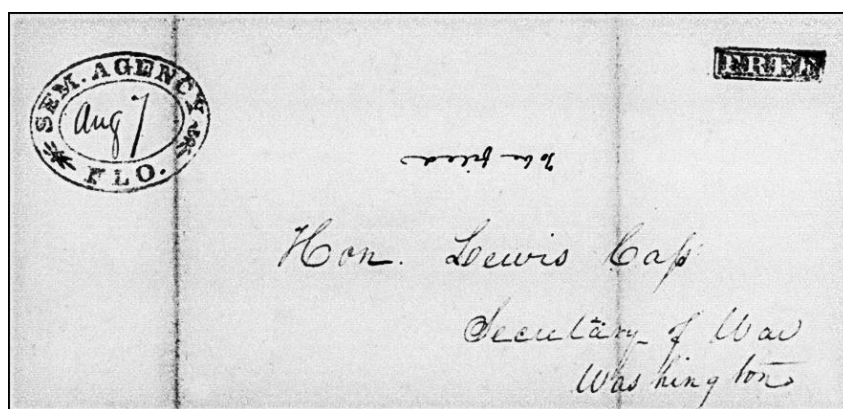 SEM. AGENCY
Aug 7
FLO.
FREE
To be filed
Hon. Lewis Cass
Secretary of War
Washington